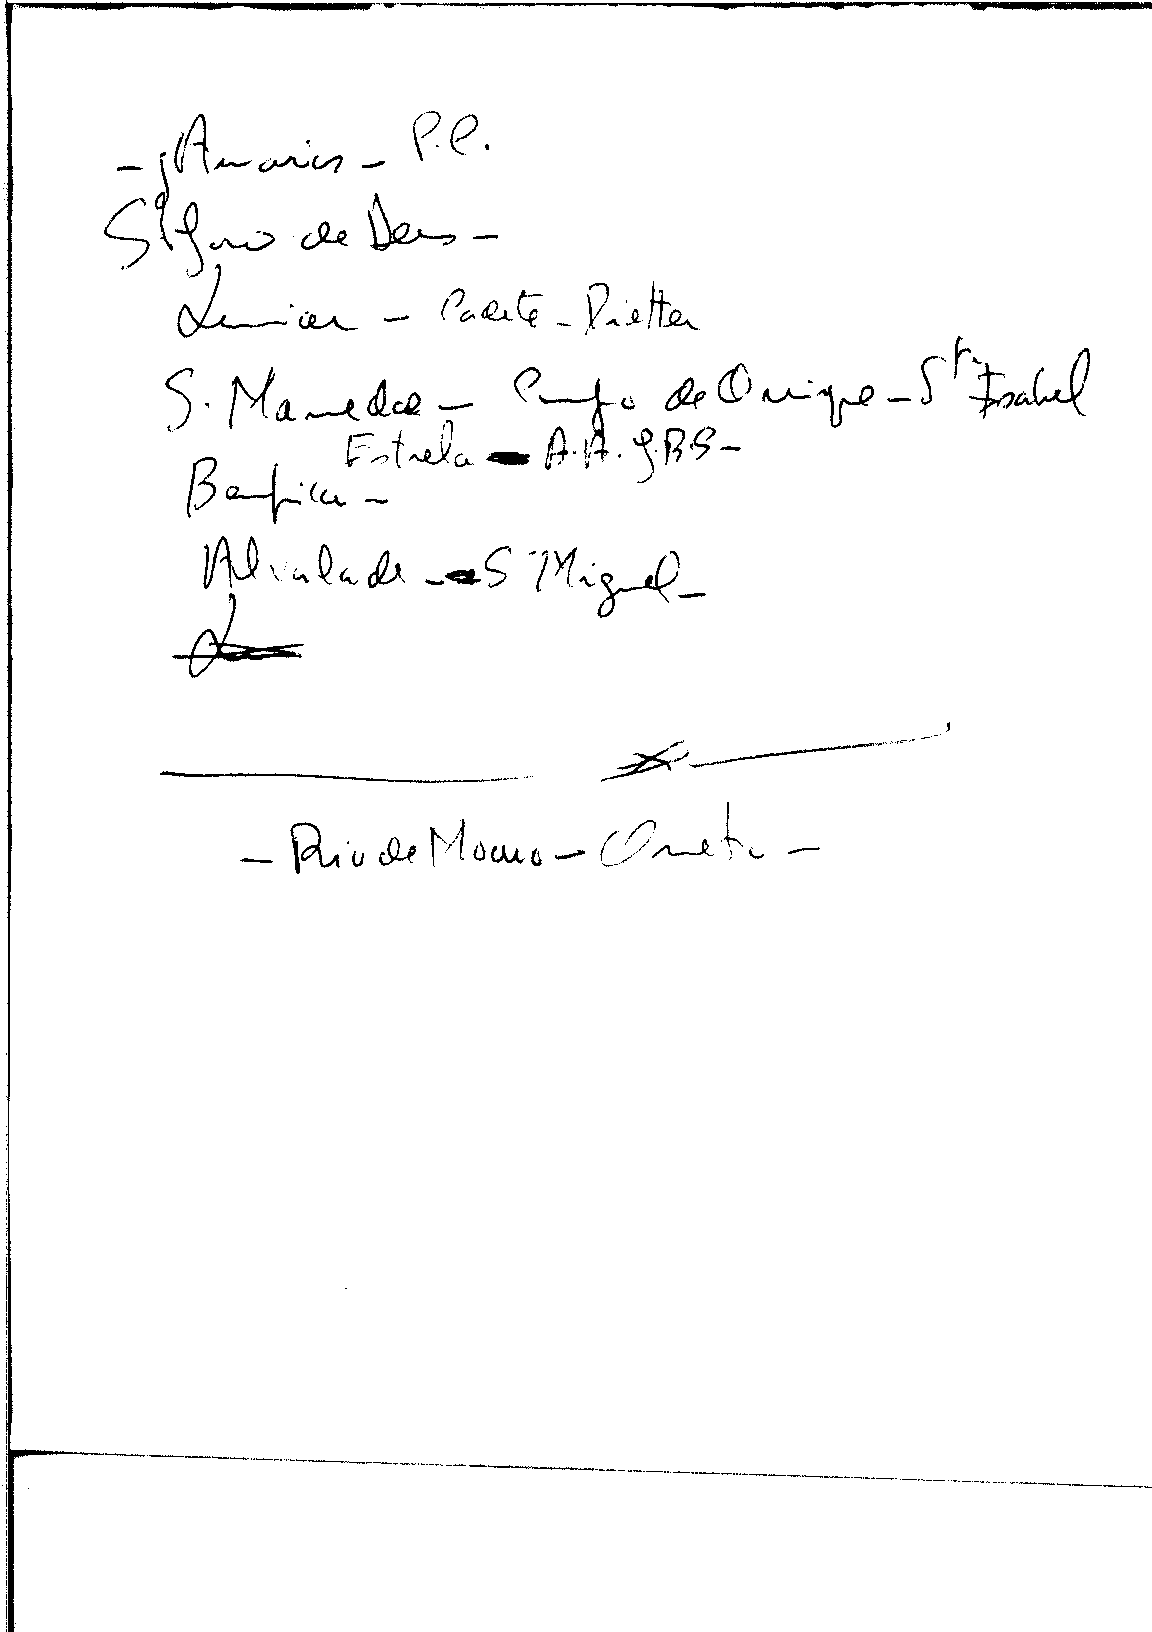 - Amorins - P.P.
S. João de Deus -
Lumiar - Padete - Prietter
S. Mamede - Campo de Ourique - Sta Isabel
Estrela - A.A. J.B.S -
Benfica -
Alvalade - S Miguel -
- Rio de Mouro - Oneto -